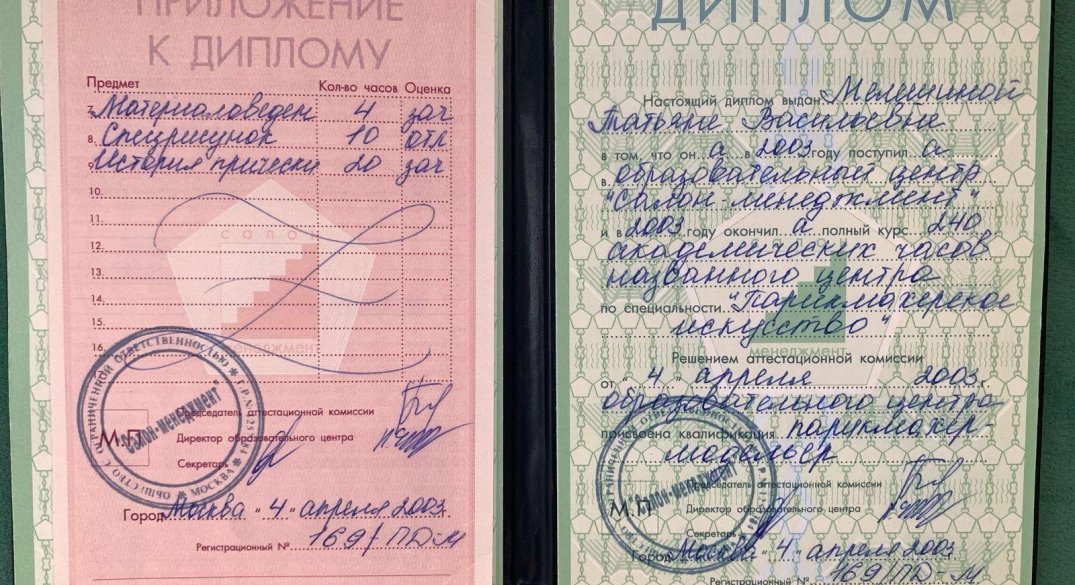 ПРИЛОЖЕНИЕ
К ДИПЛОМУ
Предмет Кол-во часов Оценка
7. Материаловеден 4 зач
8. Спецрисунок 10 отл
9. История прически 20 зач
10.
11.
12.
13.
14.
15.
16.
сало
менеджмент
ОБЩЕСТВО С ОГРАНИЧЕННОЙ ОТВЕТСТВЕННОСТЬЮ
МОСКВА
"Салон-менеджмент"
М.П.
Председатель аттестационной комиссии
Директор образовательного центра
Секретарь
Город Москва "4" апреля 2003
Регистрационный № 169/ПД-М
ДИПЛОМ
Настоящий диплом выдан Мелешиной
Татьяне Васильевне
в том, что он а в 2003 году поступил а
в образовательный центр
"Салон-менеджмент"
и в 2003 году окончил а полный курс 240
академических часов
названного центра
по специальности "Парикмахерское
искусство"
менеджмент
Решением аттестационной комиссии
от "4" апреля 2003 г.
образовательного центра
присвоена квалификация парикмахер-
модельер
"Салон-менеджмент"
Председатель аттестационной комиссии
М.
Директор образовательного центра
Секретарь
Город Москва "4" апреля 2003
Регистрационный № 169/ПД-М